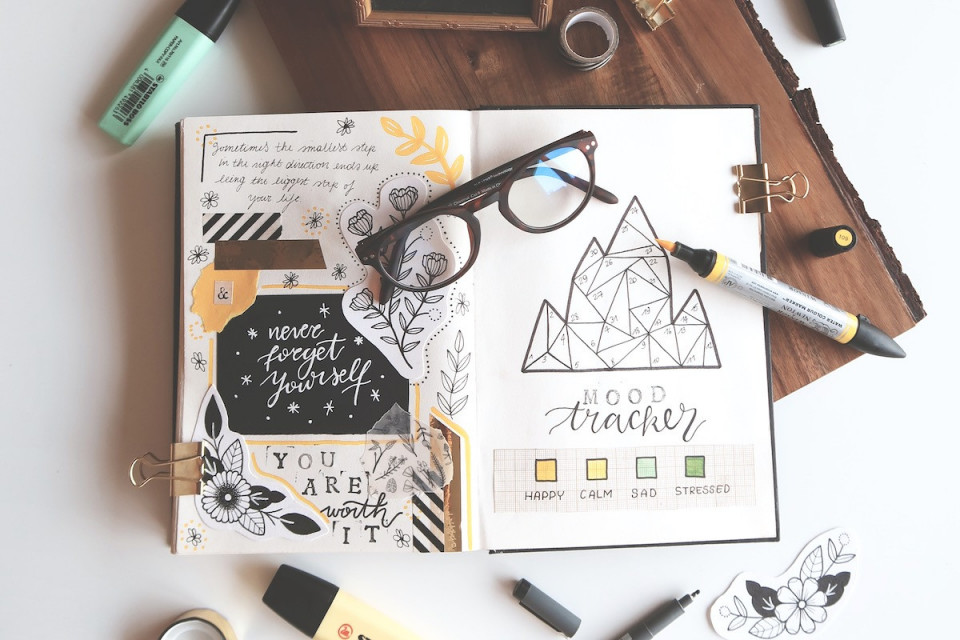 Sometimes the smallest step
in the right direction ends up
being the biggest step of
your life
&
never
forget
yourself
YOU
ARE
worth
IT
MOOD
tracker
HAPPY CALM SAD STRESSED
STABILO BOSS
WATER COLOUR MARKER
NEWTON